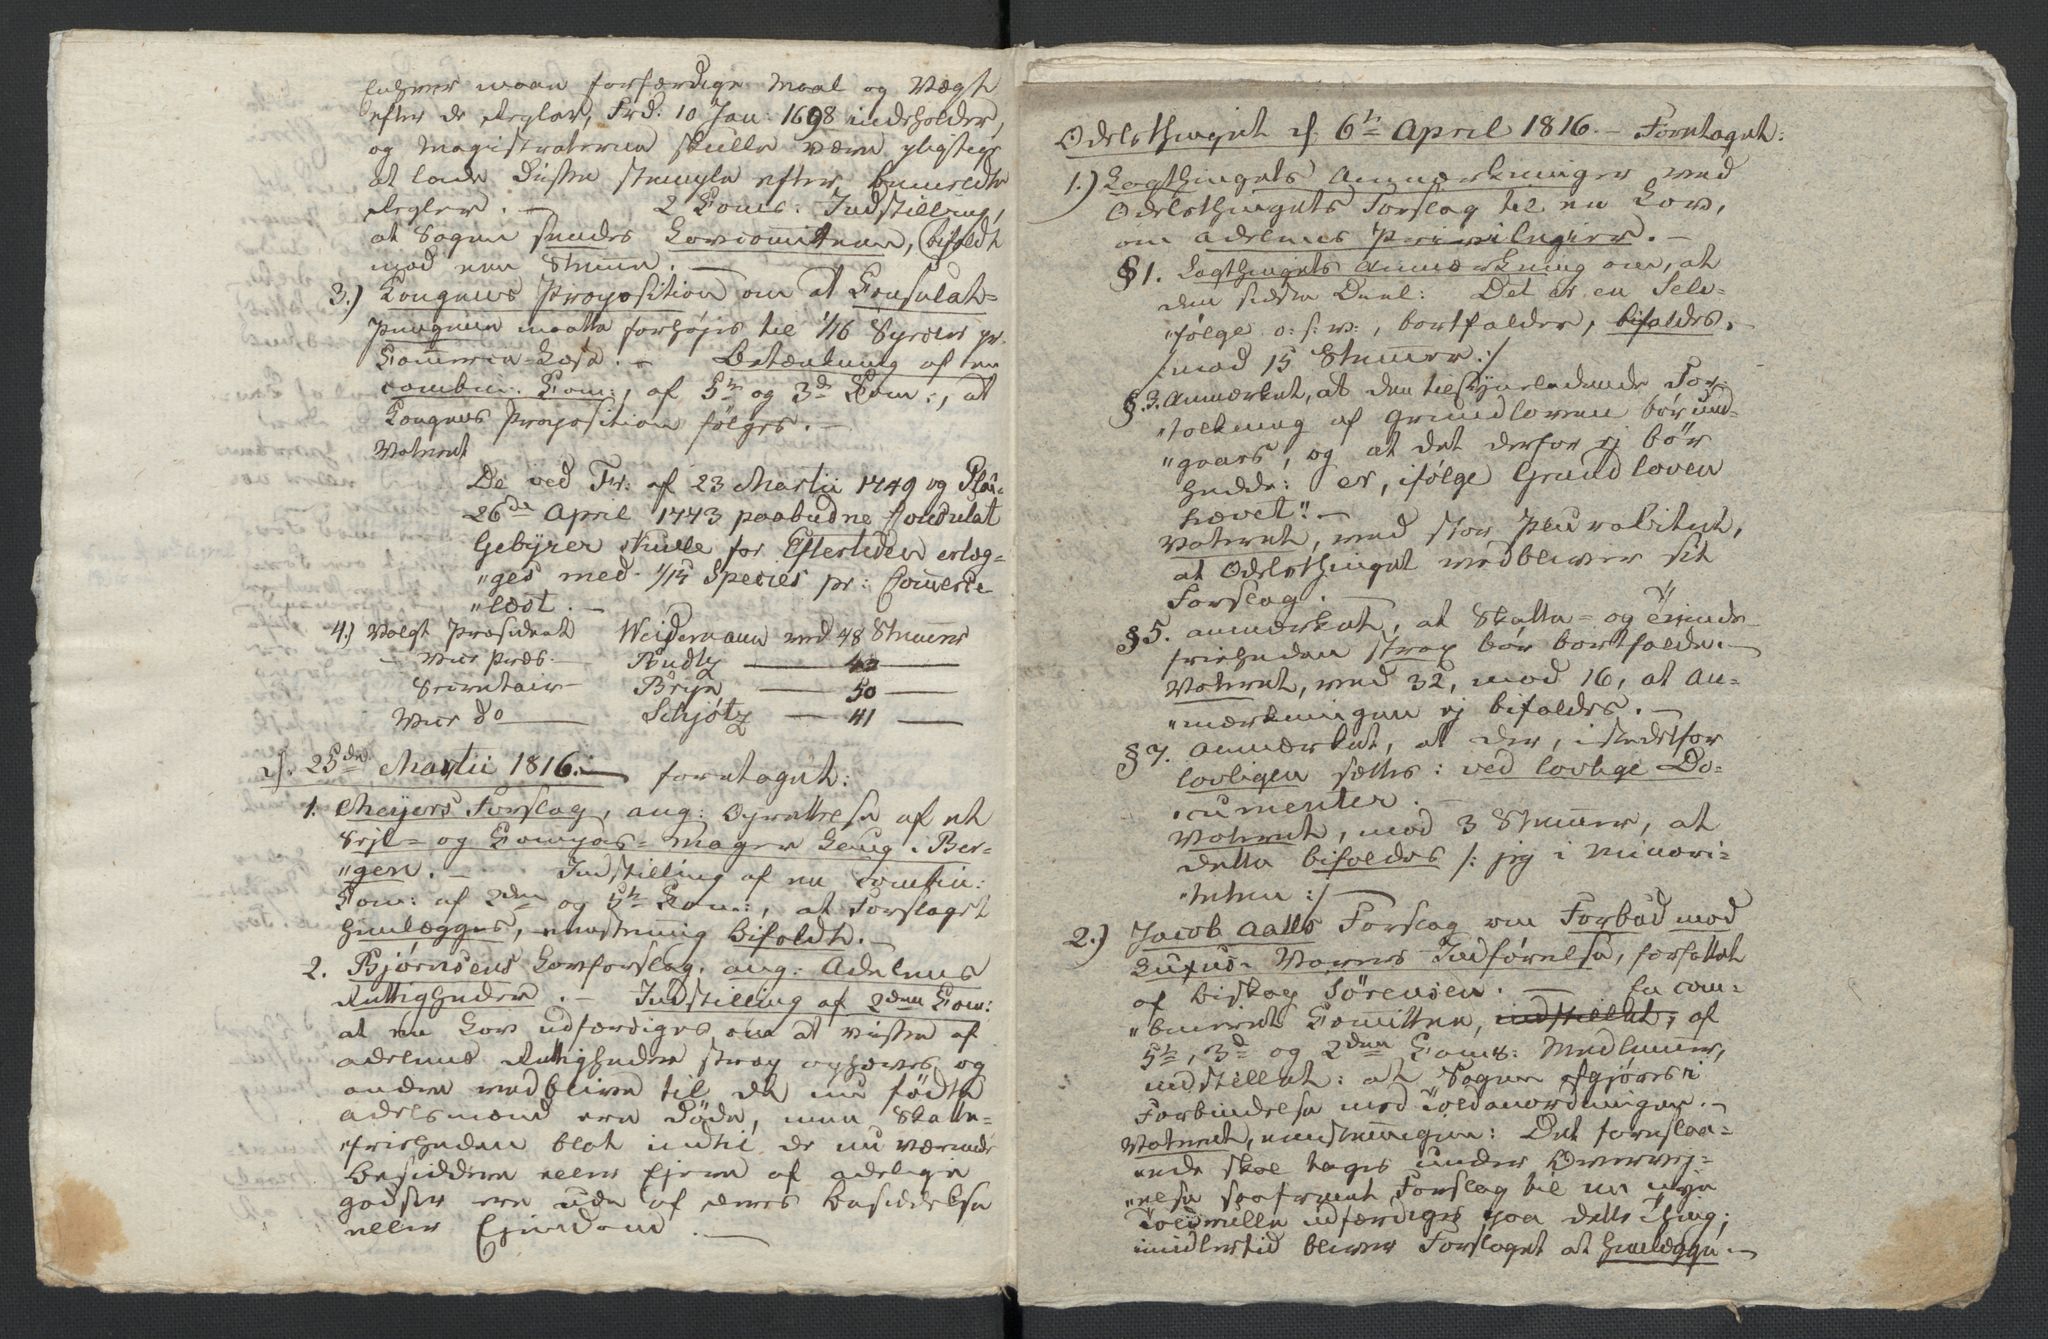 enhver maan forfærdige Maal og Vægt
efter de Regler, Frd. 10 Jan: 1698 indeholder,
og Magistraterne skulle være pligtige
at lade disse stemple efter bemeldte
Regler. — 2 Coms: Indstilling,
at Sagen sendes Lovcomiteen, bifaldt
mod een Stemme. —
3.) Kongens Proposition om at Consulat-
Pengene maatte forhøjes til 1/16 Species pr.
Commerce-Læst. — Betænkning af en
combin: Com:, af 5te og 3de Com:, at
Kongens Proposition følges. —
Voteret
De ved Fr: af 23 Martii 1749 og Plac:
26de April 1743 paabudne Consulat
Gebyrer skulle for Eftertiden erlæg-
"ges med 1/15 Species pr: Commerce
"læst. —
4.) Valgt Præsident Weidemann med 48 Stemmer
— Vice Præs. — Büdtz — 40 —
Secretair — Bryn — 50 —
Vice do — Schjøtz — 41 —
d. 25de Martii 1816. — foretaget:
1. Meyers Forslag, ang: Oprettelse af et
Sejl- og Compas-Mager Laug i Ber-
"gen. — Indstilling af en combin:
Com: af 2den og 5te Com:, at Forslaget
henlægges, eenstemmig bifaldt. —
2. Bjørnsens Lovforslag, ang: Adelens
Rettigheder. — Indstilling af 2den Com:
at en Lov udfærdiges om at visse af
Adelens Rettigheder strax ophæves og
andre vedblive til de nu fødte
Adelsmænd ere døde, men Skatte-
"friheden blot indtil de nu værende
Besiddere eller Ejere af adelige
godser ere ude af deres Besiddelse
eller Ejendom. —
Odelsthinget d. 6te April 1816. — Foretaget:
1.) Lagthingets Anmærkninger ved
Odelsthingets Forslag til en Lov,
om Adelens Privilegier. —
§1. Lagthingets Anmærkning om, at
den sidste Deel: Det er en Selv-
"følge o: s: v:, bortfalder, bifaldes.
/: mod 15 Stemmer :/
§.3. Anmærket, at den tilsyneladende For-
"tolkning af Grundloven bør und-
"gaaes, og at det derfor ej bør
hedde: er, ifølge Grundloven
hævet". —
Voteret, med stor Pluralitet,
at Odelsthinget vedbliver sit
Forslag.
§5. Anmærket, at Skatte- og Tiende-
friheden strax bør bortfalde. —
Voteret, med 32, mod 16, at An-
"mærkningen ej bifaldes. —
§7. Anmærket, at der, istedetfor
lovligen sættes: ved lovlige Do-
"cumenter. —
Voteret, mod 3 Stemmer, at
dette bifaldes /: jeg i Minori-
"teten :/ —
2.) Jacob Aalls Forslag om Forbud mod
Luxus-Varers Indførelse, forfattet
af Biskop Sörensen. — En com-
"bineret Comittee, indstillet, af
5te, 3de og 2den Coms: Medlemmer,
indstillet: at Sagen afgjøres i
Forbindelse med Toldanordningen. —
Voteret, eenstemmigen: Det foreslaa-
"ede skal tages under Overvej-
"else saafremt Forslag til en nye
Toldrulle udfærdiges paa dette Thing;
imidlertid bliver Forslaget at henlægge. —